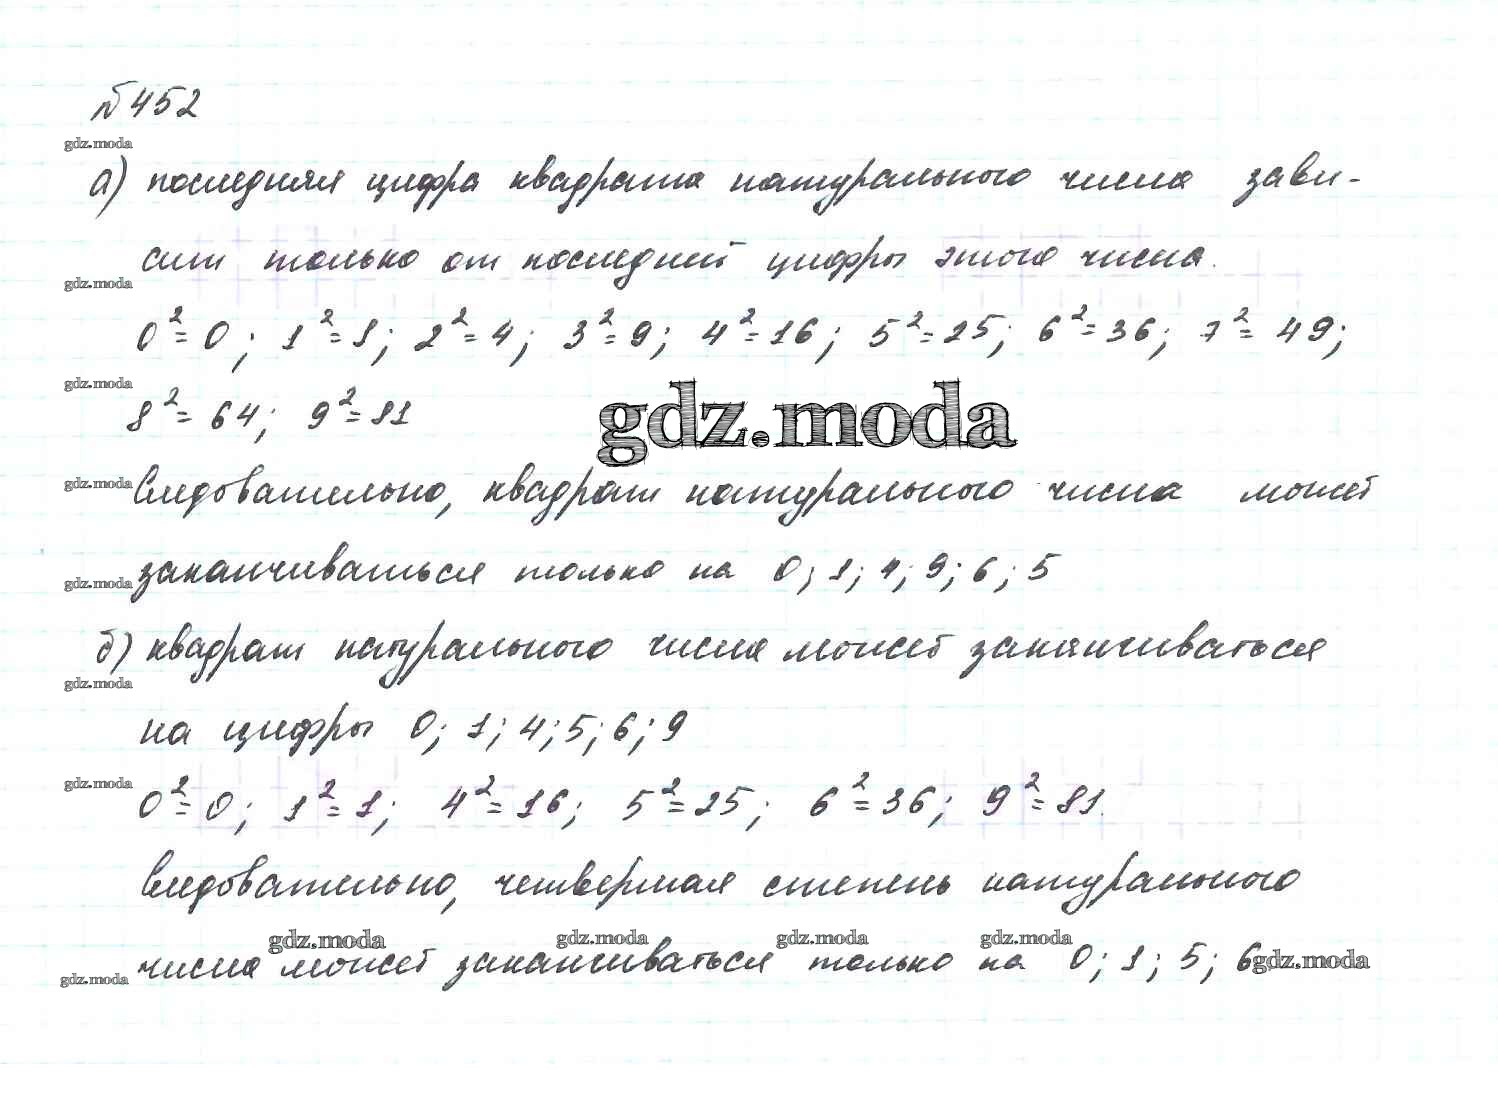 №452
gdz.moda
а) последняя цифра квадрата натурального числа зави-
сит только от последней цифры этого числа.
gdz.moda
0²=0; 1²=1; 2²=4; 3²=9; 4²=16; 5²=25; 6²=36; 7²=49;
gdz.moda
8²=64; 9²=81
gdz.moda
gdz.moda
Следовательно, квадрат натурального числа может
gdz.moda
заканчиваться только на 0; 1; 4; 9; 6; 5
б) квадрат натурального числа может заканчиваться
gdz.moda
на цифры 0; 1; 4; 5; 6; 9
gdz.moda
0²=0; 1²=1; 4²=16; 5²=25; 6²=36; 9²=81.
Следовательно, четвертая степень натурального
gdz.moda gdz.moda gdz.moda gdz.moda
числа может заканчиваться только на 0; 1; 5; 6
gdz.moda gdz.moda